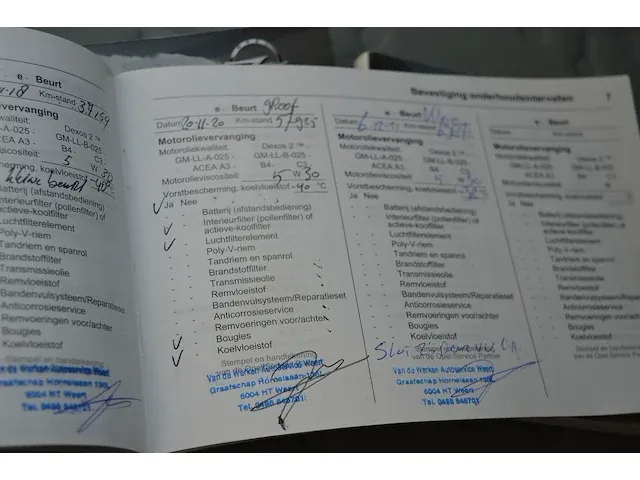 Bevestiging onderhoudsintervallen 7
e - Beurt
Km-stand
vervanging
Dexos 2 ™
GM-LL-B-025 -
ACEA A3 - B4- C3
5 W 30
Batterij (afstandsbediening)
Interieurfilter (pollenfilter) of
actieve-koolfilter
Luchtfilterelement
Poly-V-riem
Tandriem en spanrol
Brandstoffilter
Transmissieolie
Remvloeistof
Bandenvulsysteem/Reparatieset
Anticorrosieservice
Remvoeringen voor/achter
Bougies
Koelvloeistof
Stempel en handtekening
Van de Werken Autoservice Weert
Graafschap Hornelaan 130L
6004 HT Weert
Tel. 0495 548701
e - Beurt groot
Datum 20-11-20 Km-stand
Motorolievervanging
Motoroliekwaliteit: Dexos 2 ™ -
GM-LL-A-025- GM-LL-B-025 -
ACEA A3 - B4- C3-
Motorolieviscositeit: 5 W 30
Vorstbescherming, koelvloeistof -40 °C
Ja Nee
- - Batterij (afstandsbediening)
✓ - Interieurfilter (pollenfilter) of
actieve-koolfilter
✓ - Luchtfilterelement
- - Poly-V-riem
- - Tandriem en spanrol
- - Brandstoffilter
- - Transmissieolie
- - Remvloeistof
- - Bandenvulsysteem/Reparatieset
- - Anticorrosieservice
- - Remvoeringen voor/achter
✓ - Bougies
✓ - Koelvloeistof
Stempel en handtekening
Van de Werken Autoservice Weert
Graafschap Hornelaan 130L
6004 HT Weert
Tel. 0495 548701
e - Beurt
Datum Km-stand
Motorolievervanging
Motoroliekwaliteit: Dexos 2 ™
GM-LL-A-025 - GM-LL-B-025 -
ACEA A3 - B4- C3
Motorolieviscositeit: W
Vorstbescherming, koelvloeistof
Ja Nee
- - Batterij (afstandsbediening)
- - Interieurfilter (pollenfilter) of
actieve-koolfilter
- - Luchtfilterelement
- - Poly-V-riem
- - Tandriem en spanrol
- - Brandstoffilter
- - Transmissieolie
- - Remvloeistof
- - Bandenvulsysteem/Reparatieset
- - Anticorrosieservice
- - Remvoeringen voor/achter
- - Bougies
- - Koelvloeistof
van de Opel Service Partner
Van de Werken Autoservice Weert
Graafschap Hornelaan 130L
6004 HT Weert
Tel. 0495 548701
e - Beurt
Datum Km-stand
Motorolievervanging
Motoroliekwaliteit: Dexos 2 ™
GM-LL-A-025 - GM-LL-B-025
ACEA A3 - B4- C3
Motorolieviscositeit: W
Vorstbescherming, koelvloeistof
Ja Nee
- - Batterij (afstandsbediening)
- - Interieurfilter (pollenfilter) of
actieve-koolfilter
- - Luchtfilterelement
- - Poly-V-riem
- - Tandriem en spanrol
- - Brandstoffilter
- - Transmissieolie
- - Remvloeistof
- - Bandenvulsysteem/Reparatieset
- - Anticorrosieservice
- - Remvoeringen voor/achter
- - Bougies
- - Koelvloeistof
Stempel en handtekening
van de Opel Service Partner